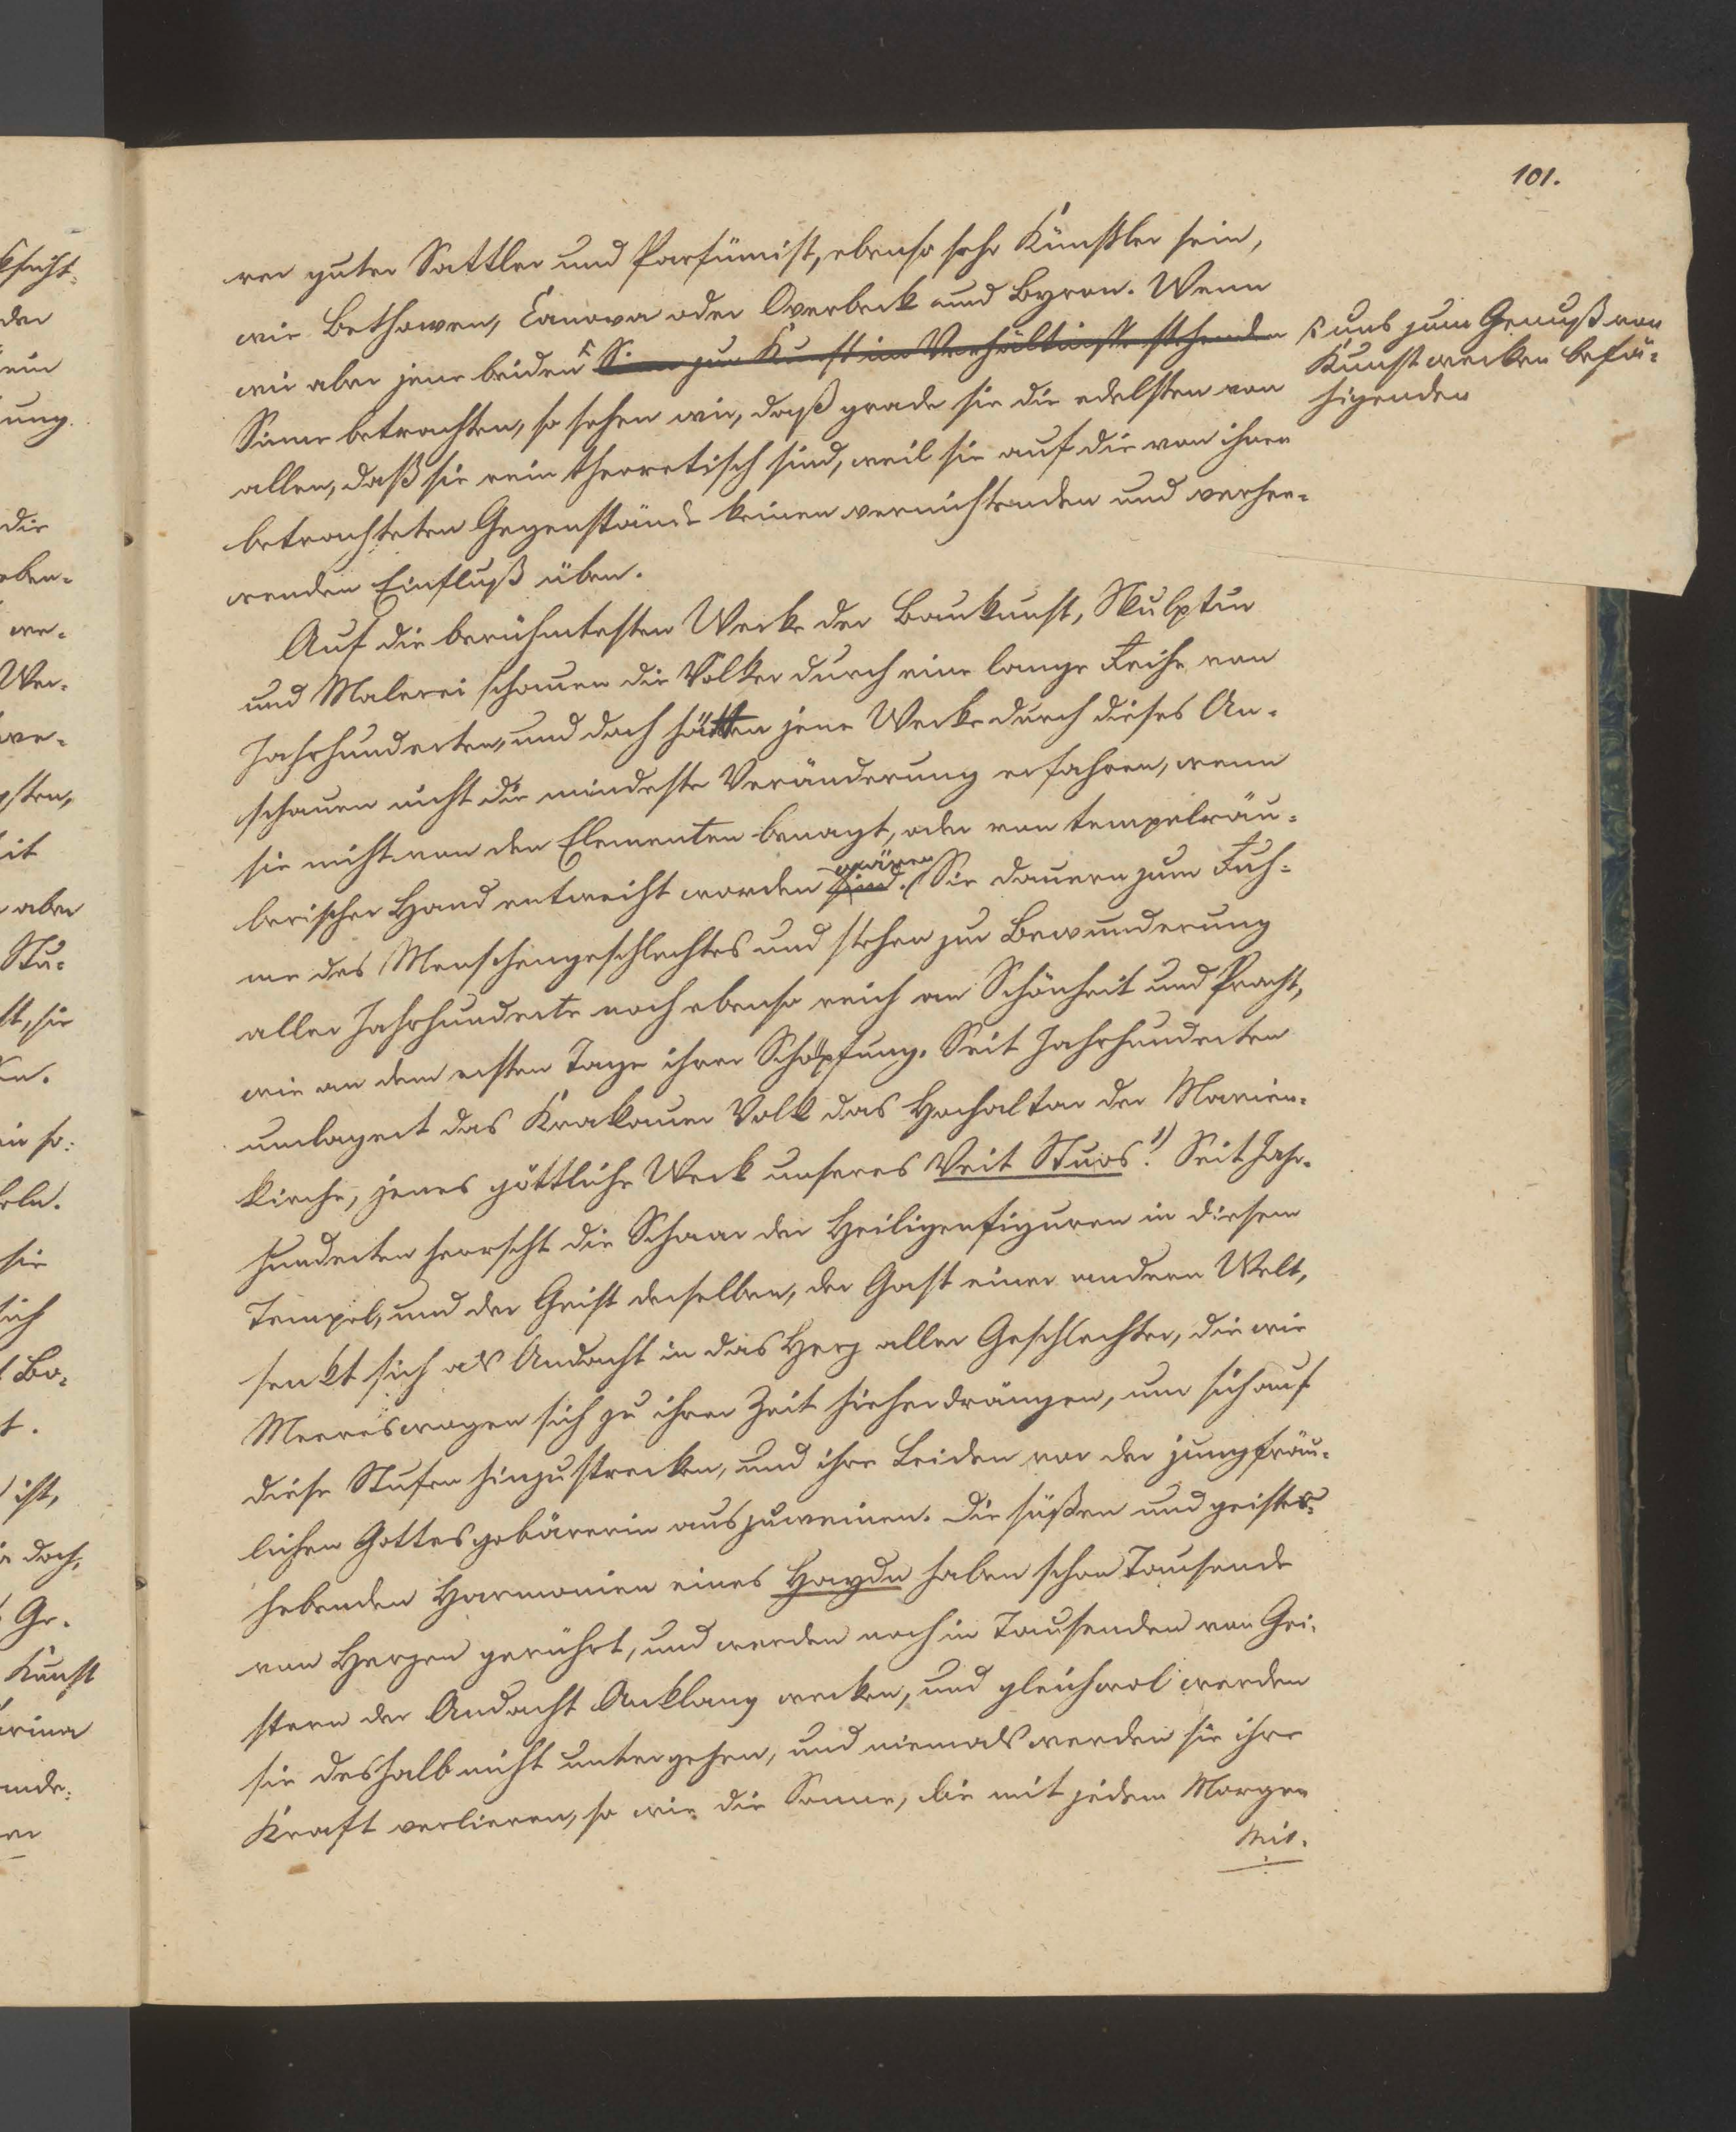 101.
rer guter Sattler und Parfümist, ebenso sehr Künstler sein,
wie Bethowen, Canova oder Overbeck und Byron. Wenn
wir aber jene beiden Sinn zur Kunst im Verhältnisse stehenden
uns zum Genuß von
Kunstwerken befä-
higenden
Sinne betrachten, so sehen wir, daß grade sie die edelsten von
allen, daß sie rein theoretisch sind, weil sie auf die von ihnen
betrachteten Gegenstände keinen vernichtenden und verhee-
renden Einfluß üben.
Auf die berühmtesten Werke der Baukunst, Skulptur
und Malerei schauen die Völker durch eine lange Reihe von
Jahrhunderten, und doch hätten jene Werke durch dieses An-
schauen nicht die mindeste Veränderung erfahren, wenn
sie nicht von den Elementen benagt, oder von tempelräu-
berischer Hand entweiht worden sind. wären Sie dauern zum Ruh-
me des Menschengeschlechtes und stehen zur Bewunderung
aller Jahrhunderte noch ebenso reich an Schönheit und Pracht,
wie an dem ersten Tage ihrer Schöpfung. Seit Jahrhunderten
umlagert das Krakauer Volk das Hochaltar der Marien-
kirche, jenes göttliche Werk unseres Veit Stuos. 1) Seit Jahr-
hunderten herrscht die Schaar der Heiligenfiguren in diesem
Tempel, und der Geist derselben, der Gast einer andern Welt,
senkt sich als Andacht in das Herz aller Geschlechter, die wie
Meereswogen sich zu ihrer Zeit hieherdrängen, um sich auf
diese Stufen hinzustrecken, und ihre Leiden vor der jungfräu-
lichen Gottesgebärerin auszuweinen. Die süßen und geister-
hebenden Harmonien eines Haydn haben schon Tausende
von Herzen gerührt, und werden noch in Tausenden von Gei-
stern der Andacht Anklang wecken, und gleichwol werden
sie deshalb nicht untergehen, und niemals werden sie ihre
Kraft verlieren, so wie die Sonne, die mit jedem Morgen